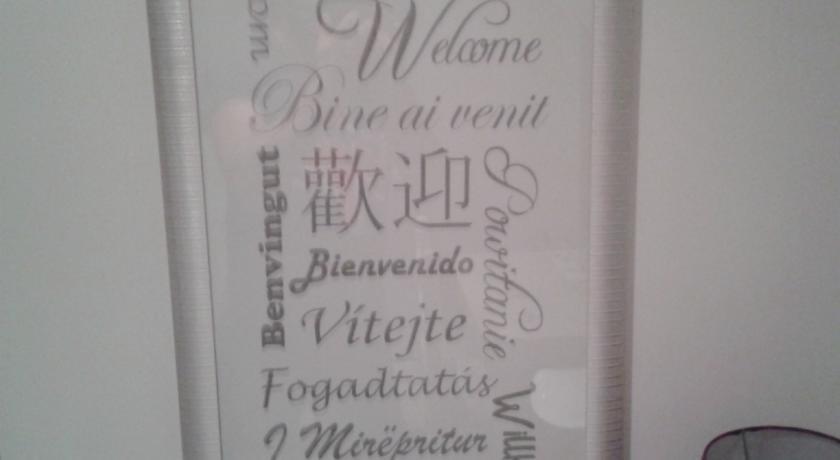 Welcome
Bine ai venit
歡迎
Benvingut
Bienvenido
Powitanie
Vítejte
Fogadtatás
I Mirëpritur